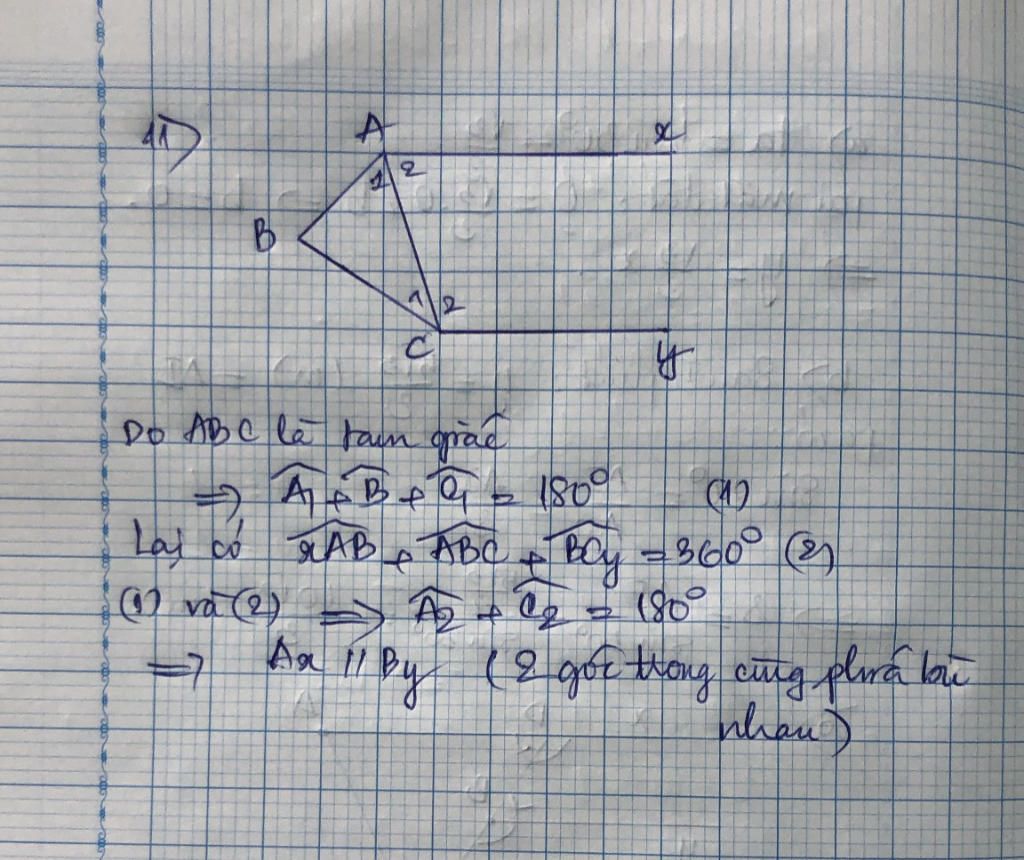 11)
A x
1 2
B
1 2
C y
Do ABC là tam giác
=> Â₁ + B̂ + Ĉ₁ = 180° (1)
Lại có xAB + ABC + BCy = 360° (2)
(1) và (2) => Â₂ + Ĉ₂ = 180°
=> Ax // By (2 góc trong cùng phía bù
nhau)